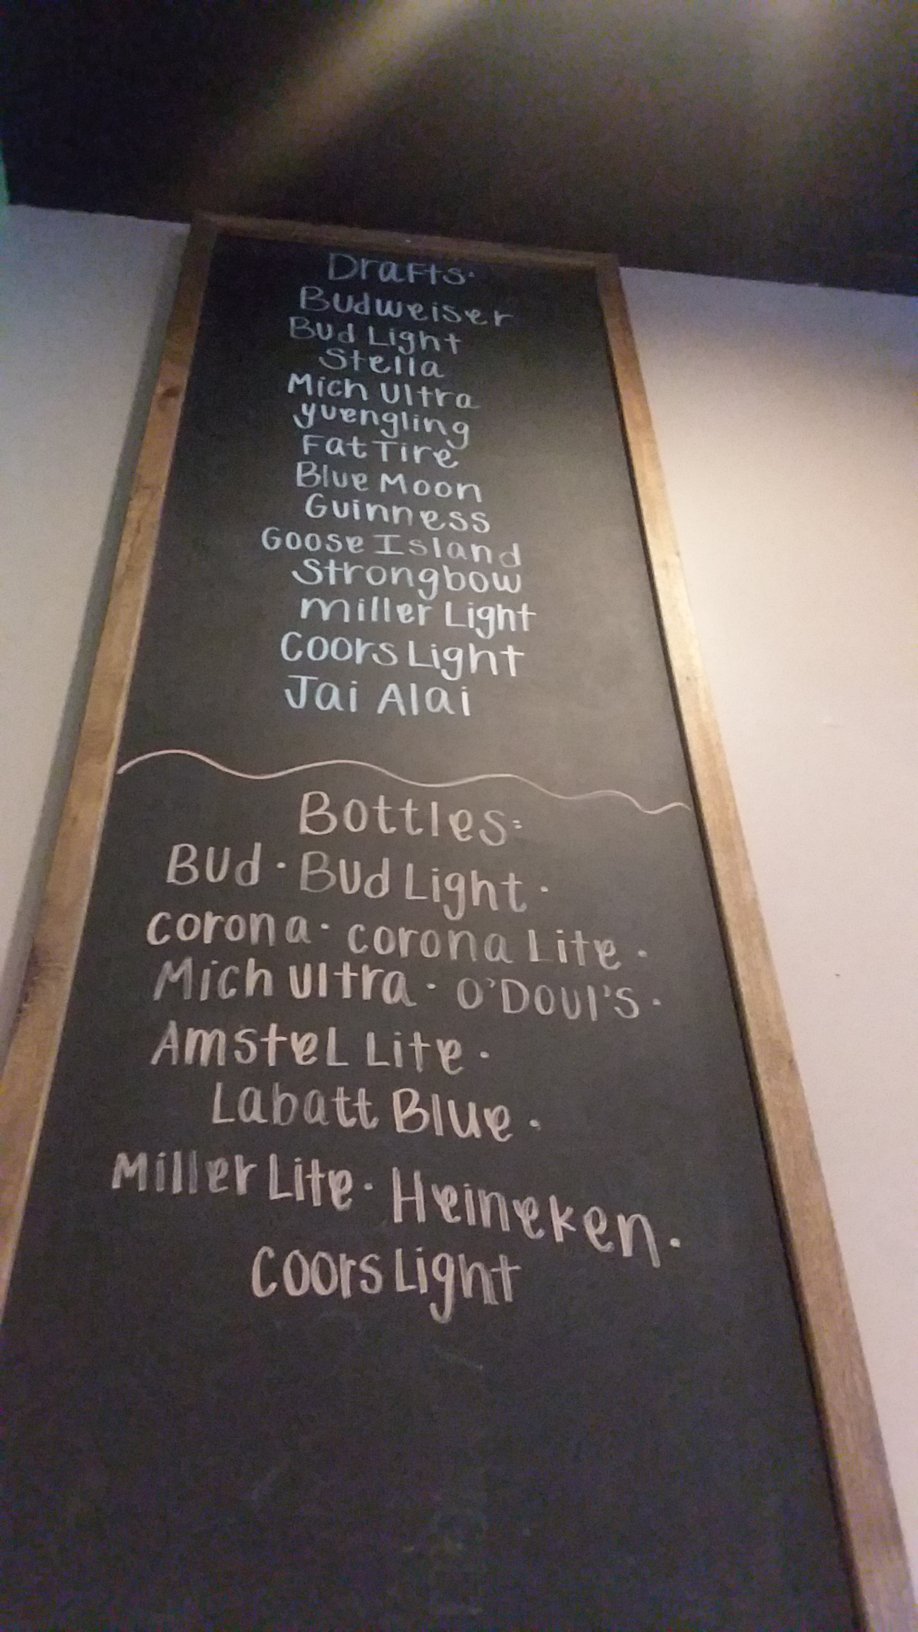 Drafts:
Budweiser
Bud Light
Stella
Mich Ultra
yuengling
Fat Tire
Blue Moon
Guinness
Goose Island
Strongbow
Miller Light
Coors Light
Jai Alai
Bottles:
Bud · Bud Light ·
corona · corona Lite ·
Mich Ultra · O'Doul's ·
Amstel Lite ·
Labatt Blue ·
Miller Lite · Heineken ·
Coors Light